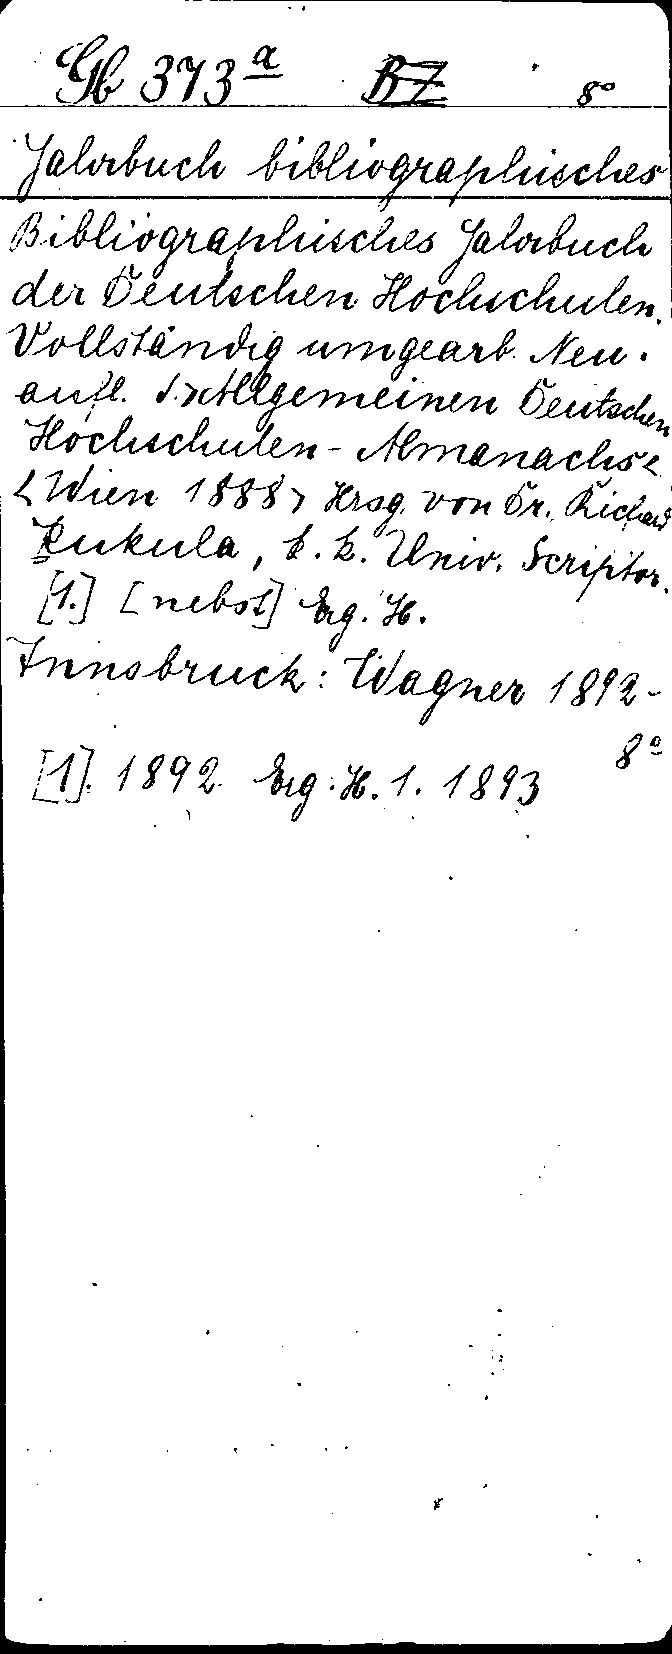 Gb 373a BZ 8°
Jahrbuch bibliographisches
Bibliographisches Jahrbuch
der Deutschen Hochschulen.
Vollständig umgearb. Neu-
aufl. d. >Allgemeinen Deutschen
Hochschulen-Almanachs<
<Wien 1888> Hrsg. von Dr. Richard
Kukula, k. k. Univ. Scriptor.
[1.] [nebst] Erg. H.
Innsbruck: Wagner 1892-
8°
[1]. 1892. Erg. H. 1. 1893